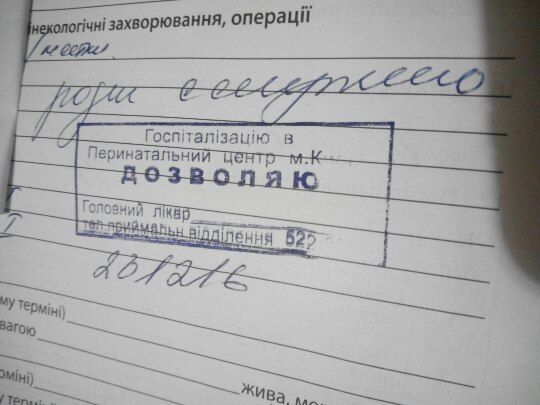 інекологічні захворювання, операції
роди
Госпіталізацію в
Перинатальний центр м.К
ДОЗВОЛЯЮ
Головний лікар
тел.приймальн.відділення 522
231216
му терміні)
вагою
жива, ме
рміні)